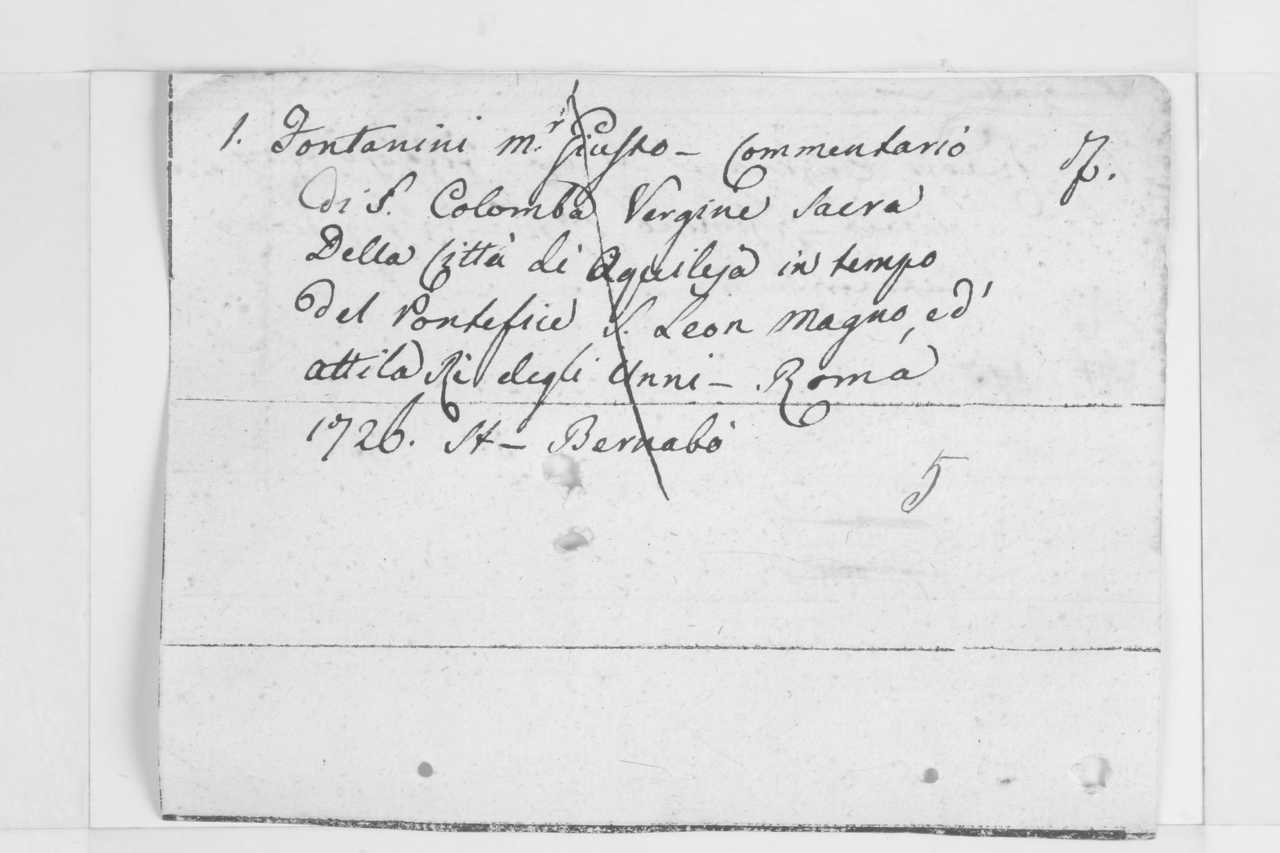 1. Fontanini m.r Giusto - Commentario
di S. Colomba Vergine Sacra
Della Città di Aquileja in tempo
del Pontefice S. Leon Magno, ed
attila Rè degli Unni - Roma
1726. St - Bernabò
5